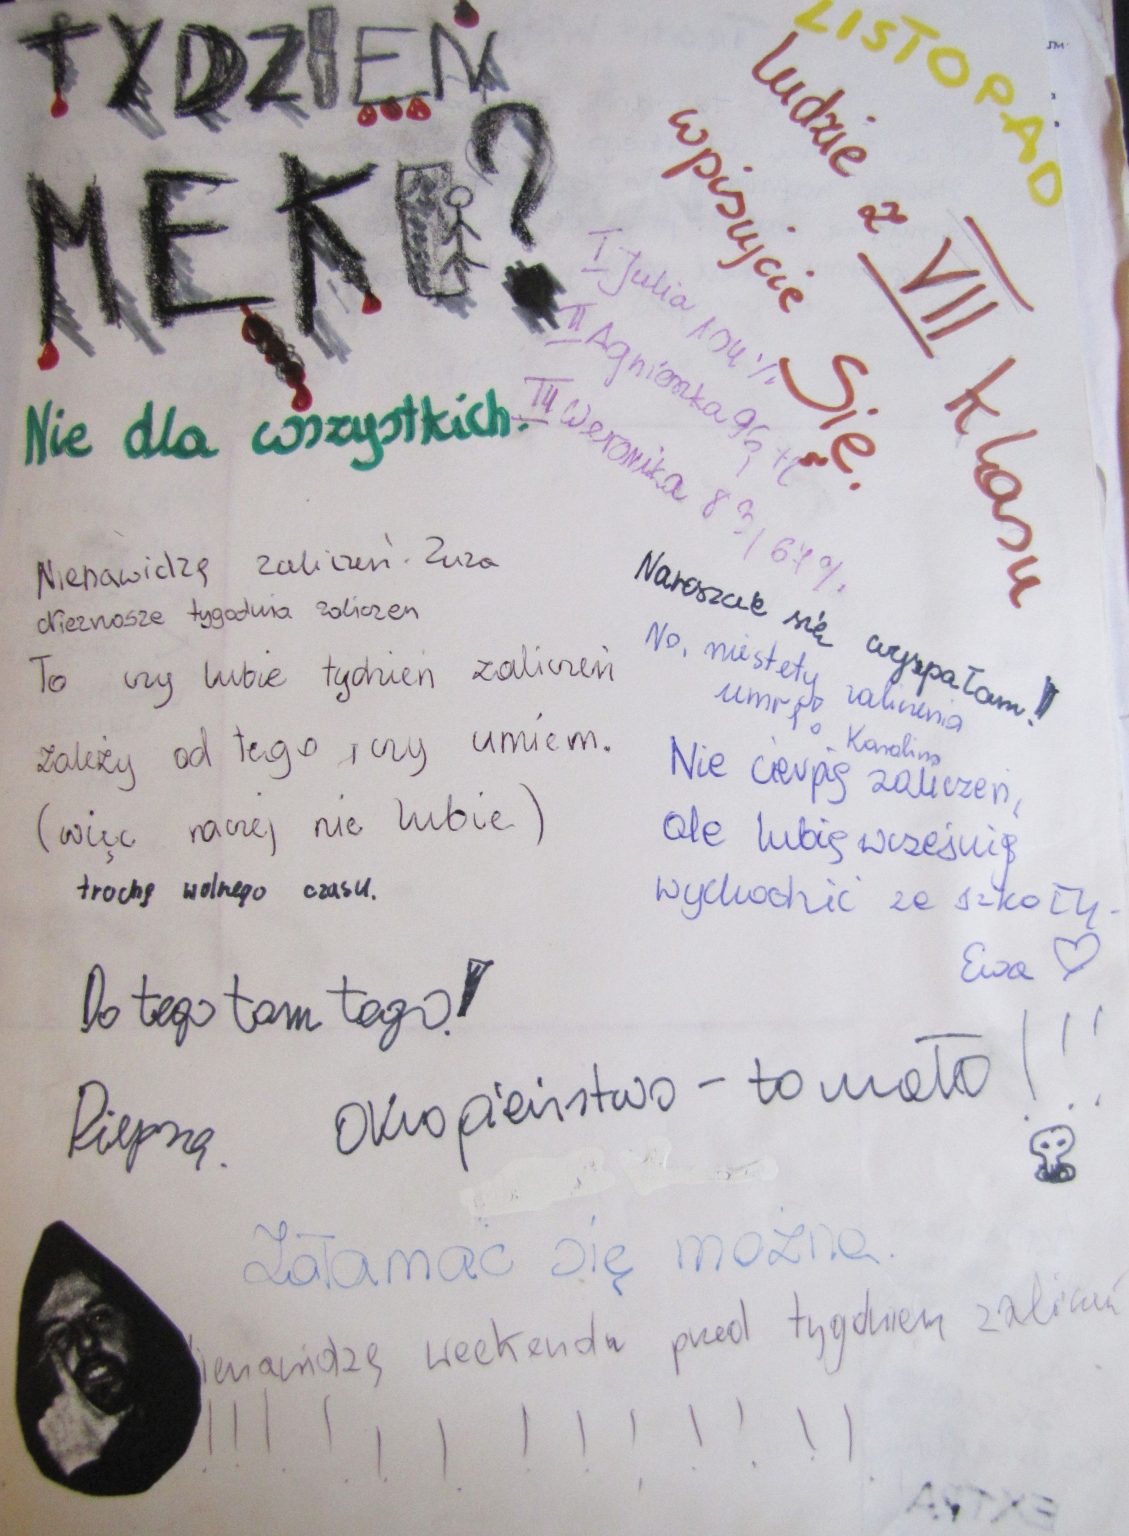 TYDZIEŃ
MĘKI?
Nie dla wszystkich.
LISTOPAD
ludzie z VII klasy
wpisujcie
Się.
I Julia 104%
II Agnieszka 96,
III Weronika 83,67%.
Nienawidzę zaliczeń. Zuza
Nieznosze tygodnia zaliczeń
To czy lubie tydzień zaliczeń
zależy od tego, czy umiem.
(więc raczej nie lubie)
trochę wolnego czasu.
Nareszcie się wyspałam!
No, niestety zaliczenia
umrę
Karolina
Nie cierpię zaliczeń,
ale lubię wcześnię
wychodzić ze szkoły.
Ewa ♡
Do tego tam tego!
Okropieństwo - to mało!!!
Załamać się można.
ienawidzę weekendu przed tygodniem zaliczeń
!!!!!!!!!!!!
EXTRA